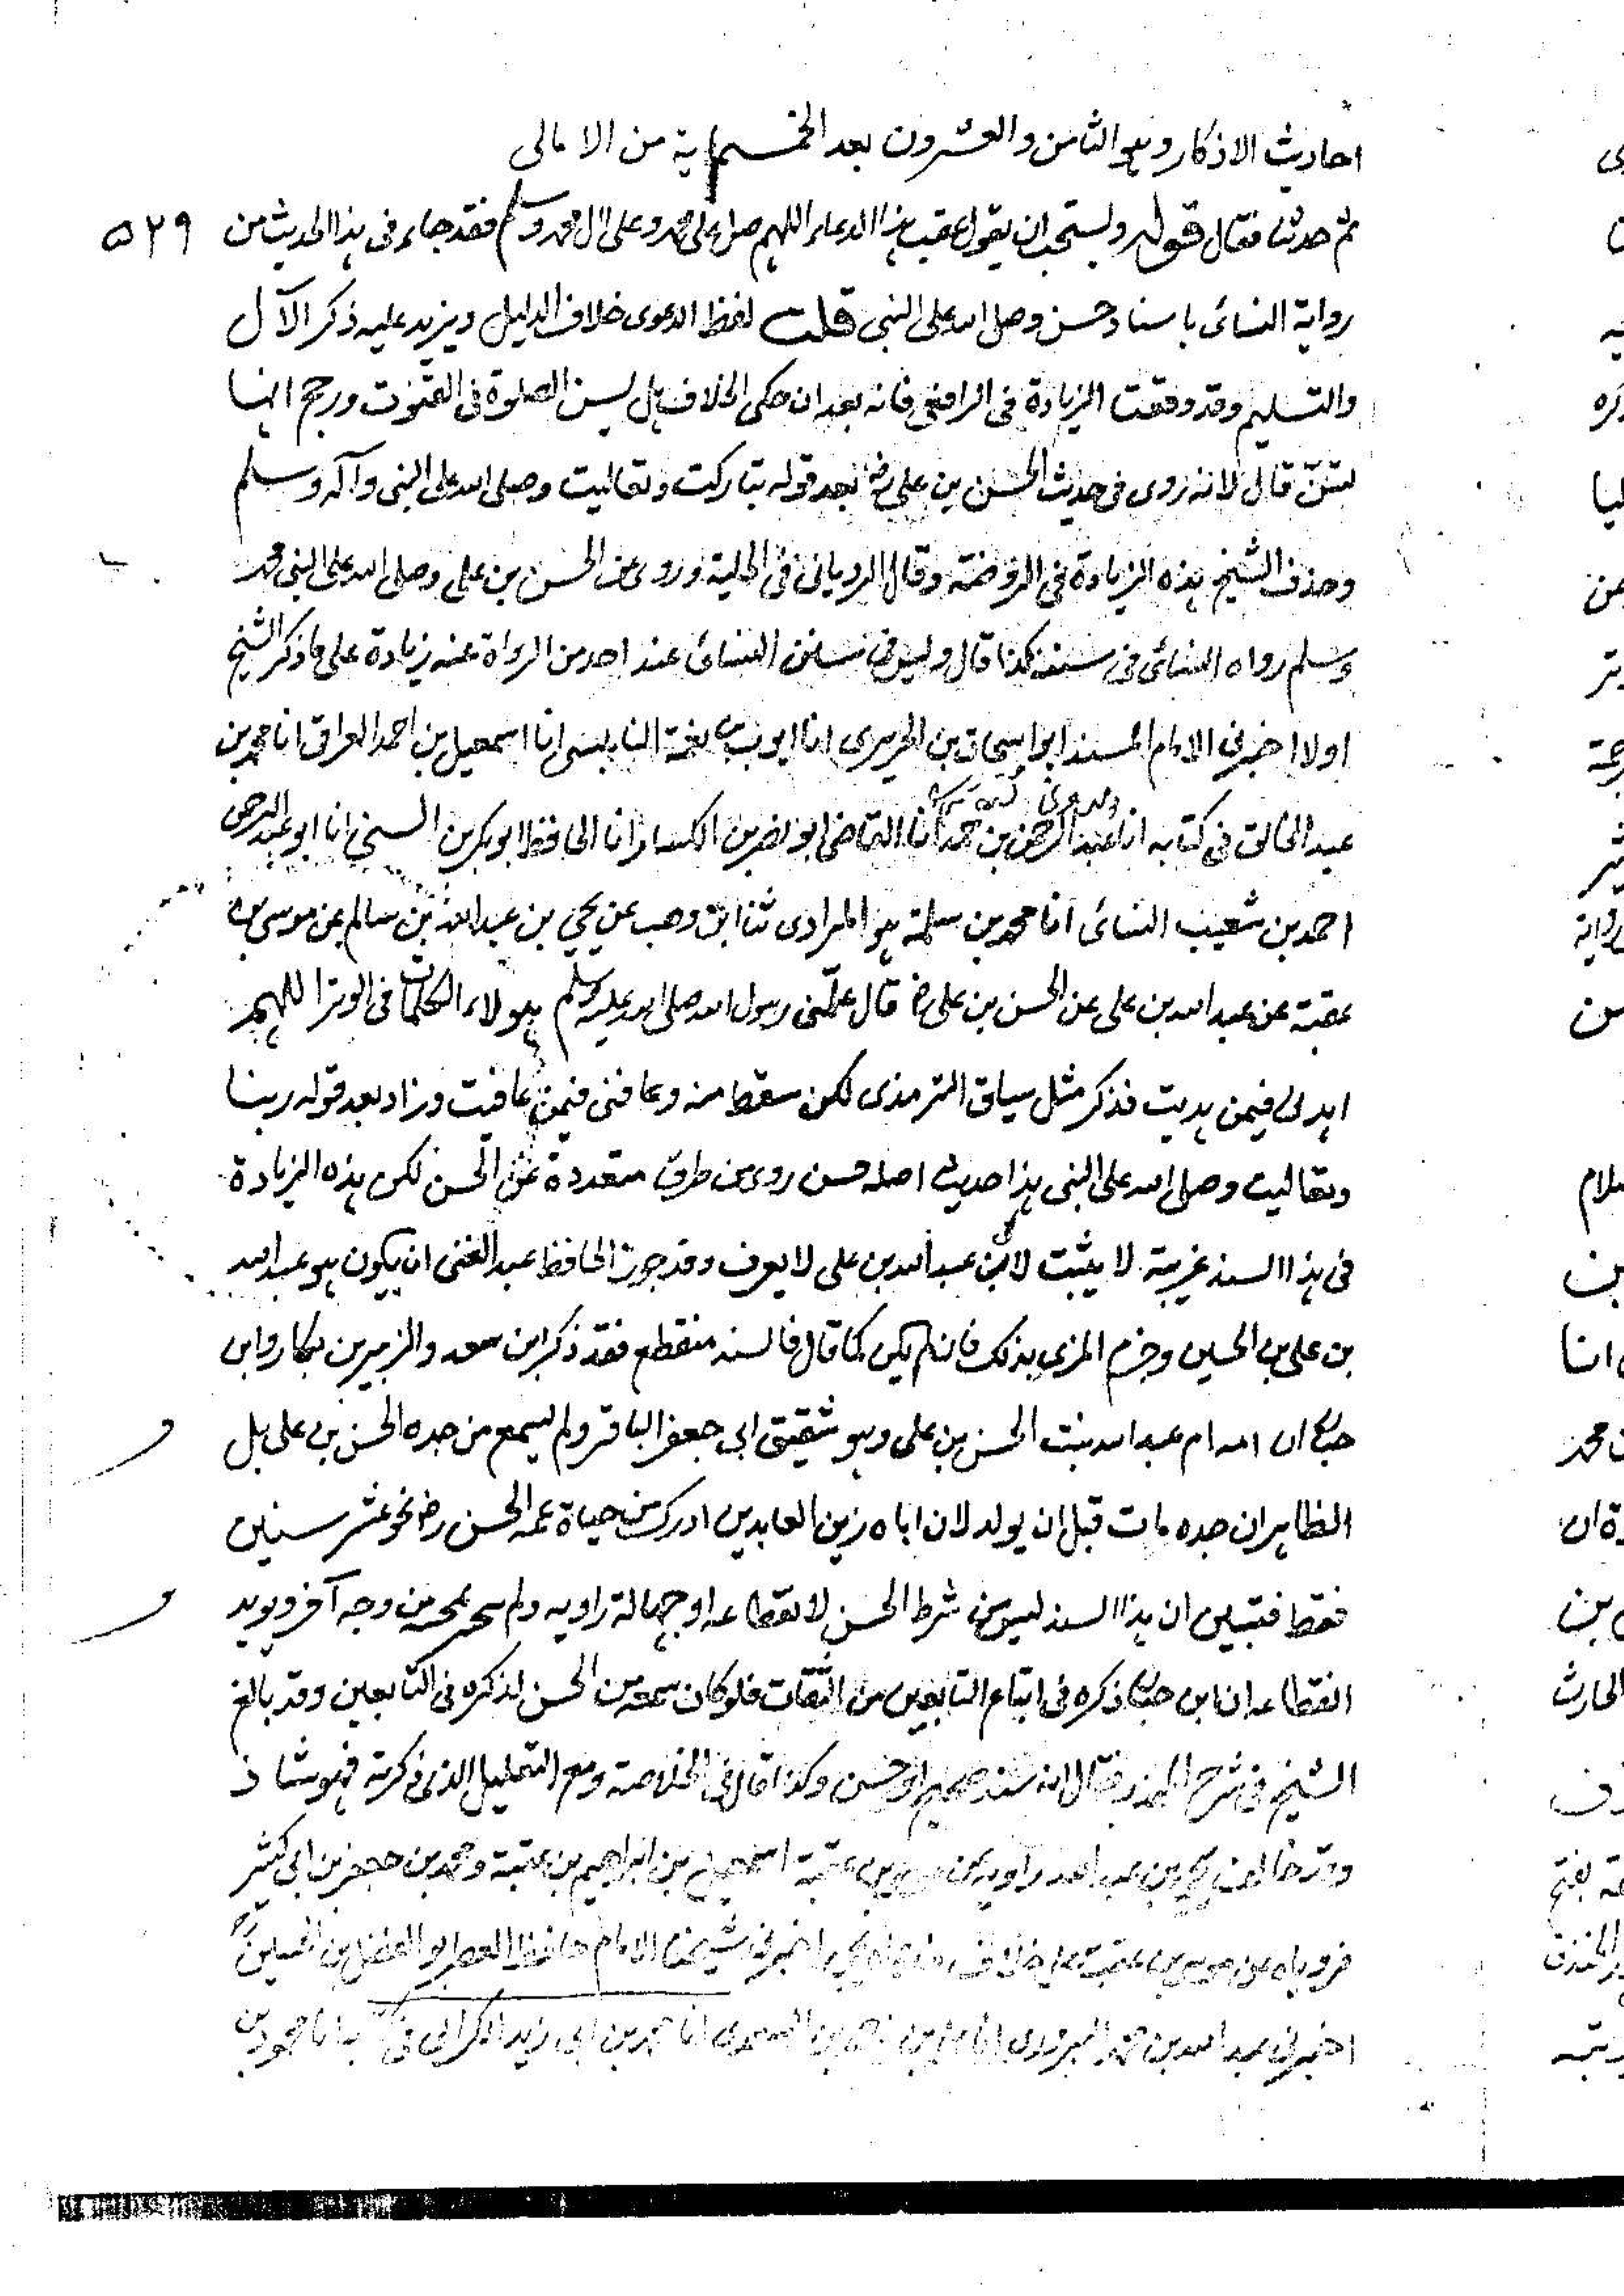 احاديث الاذكار وهو الثامن والعشرون بعد الخمسماية من الامالى
ثم حدثنا فقال قوله ويستحب ان يقول عقب هذا الدعاء اللهم صل على محمد وعلى آل محمد وسلم فقد جاء فى هذا الحديث من ٥٢٩
رواية النسائى باسناد حسن وصلى الله على النبى قلت لفظ الدعوى خلاف الدليل ويزيد عليه ذكر الآل
والتسليم وقد وقعت الزيادة فى الرافعى فانه بعد ان حكى الخلاف هل يسن الصلوة فى القنوت ورجح انها
تسن قال لانه روى فى حديث الحسن بن على رض بعد قوله تباركت وتعاليت وصلى الله على النبى وآله وسلم
وحذف الشيخ هذه الزيادة فى الروضة وقال الرويانى فى الحلية وروى عن الحسن بن على وصلى الله على النبى محمد
وسلم رواه النسائى فى سننه كذا قال وليس فى سنن النسائى عند احد من الرواة عنه زيادة على ما ذكر الشيخ
اولا اخبرنى الامام المسند ابو اسحاق بن الحريرى انا ايوب بن نعمة النابلسى انا اسمعيل بن احمد العراقى انا محمد بن
عبد الخالق فى كتابه انا عبد الرحمن بن حمد انا القاضى ابو نصر بن الكسار انا الحافظ ابو بكر بن السنى انا ابو عبد الرحمن
احمد بن شعيب النسائى انا محمد بن سلمة هو المرادى ثنا ابن وهب عن يحيى بن عبد الله بن سالم عن موسى بن
عقبة عن عبد الله بن على عن الحسن بن على رض قال علمنى رسول الله صلى الله عليه وسلم هولاء الكلمات فى الوتر اللهم
اهدنى فيمن هديت فذكر مثل سياق الترمذى لكن سقط منه وعافنى فيمن عافيت وزاد بعد قوله ربنا
وتعاليت وصلى الله على النبى هذا حديث اصله حسن روى من طرق متعددة عن الحسن لكن هذه الزيادة
فى هذا السند غريبة لا يثبت لان عبد الله بن على لا يعرف وقد جوز الحافظ عبد الغنى ان يكون هو عبد الله
بن على بن الحسين وجزم المزى بذلك فان لم يكن كما قال فالسند منقطع فقد ذكر ابن سعد والزبير بن بكار وابن
حبان ان امه ام عبد الله بنت الحسن بن على وهو شقيق ابى جعفر الباقر ولم يسمع من جده الحسن بن على بل
الظاهر ان جده مات قبل ان يولد لان اباه زين العابدين ادرك من حياة عمه الحسن رض نحو عشر سنين
فقط فتبين ان هذا السند ليس من شرط الحسن لانقطاعه او جهالة راويه ولم ينجبر بمجيئه من وجه آخر ويويد
انقطاعه ان ابن حبان ذكره فى اتباع التابعين من الثقات فلو كان سمعه من الحسن لذكره فى التابعين وقد بالغ
الشيخ فى شرح المهذب فقال انه سند صحيح او حسن وكذا قال فى الخلاصة ومع التعليل الذى ذكرته فهو شاذ
وقد خالف يحيى بن عبد الله راويه عن موسى بن عقبة اسمعيل بن ابراهيم بن عقبة ومحمد بن جعفر بن ابى كثير
فروياه عن موسى بن عقبة على خلاف ما رواه يحيى اخبرنى شيخنا الامام حافظ العصر ابو الفضل بن الحسين
اخبرنى عبد الله بن محمد البزورى انا على بن احمد بن السعدى انا محمد بن ابى زيد الكرانى فى كتابه انا محمود بن